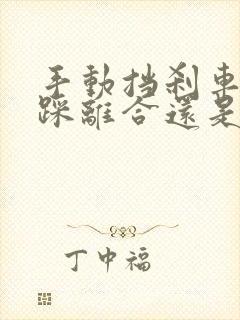 手動挡刹車
踩離合還是
丁中福